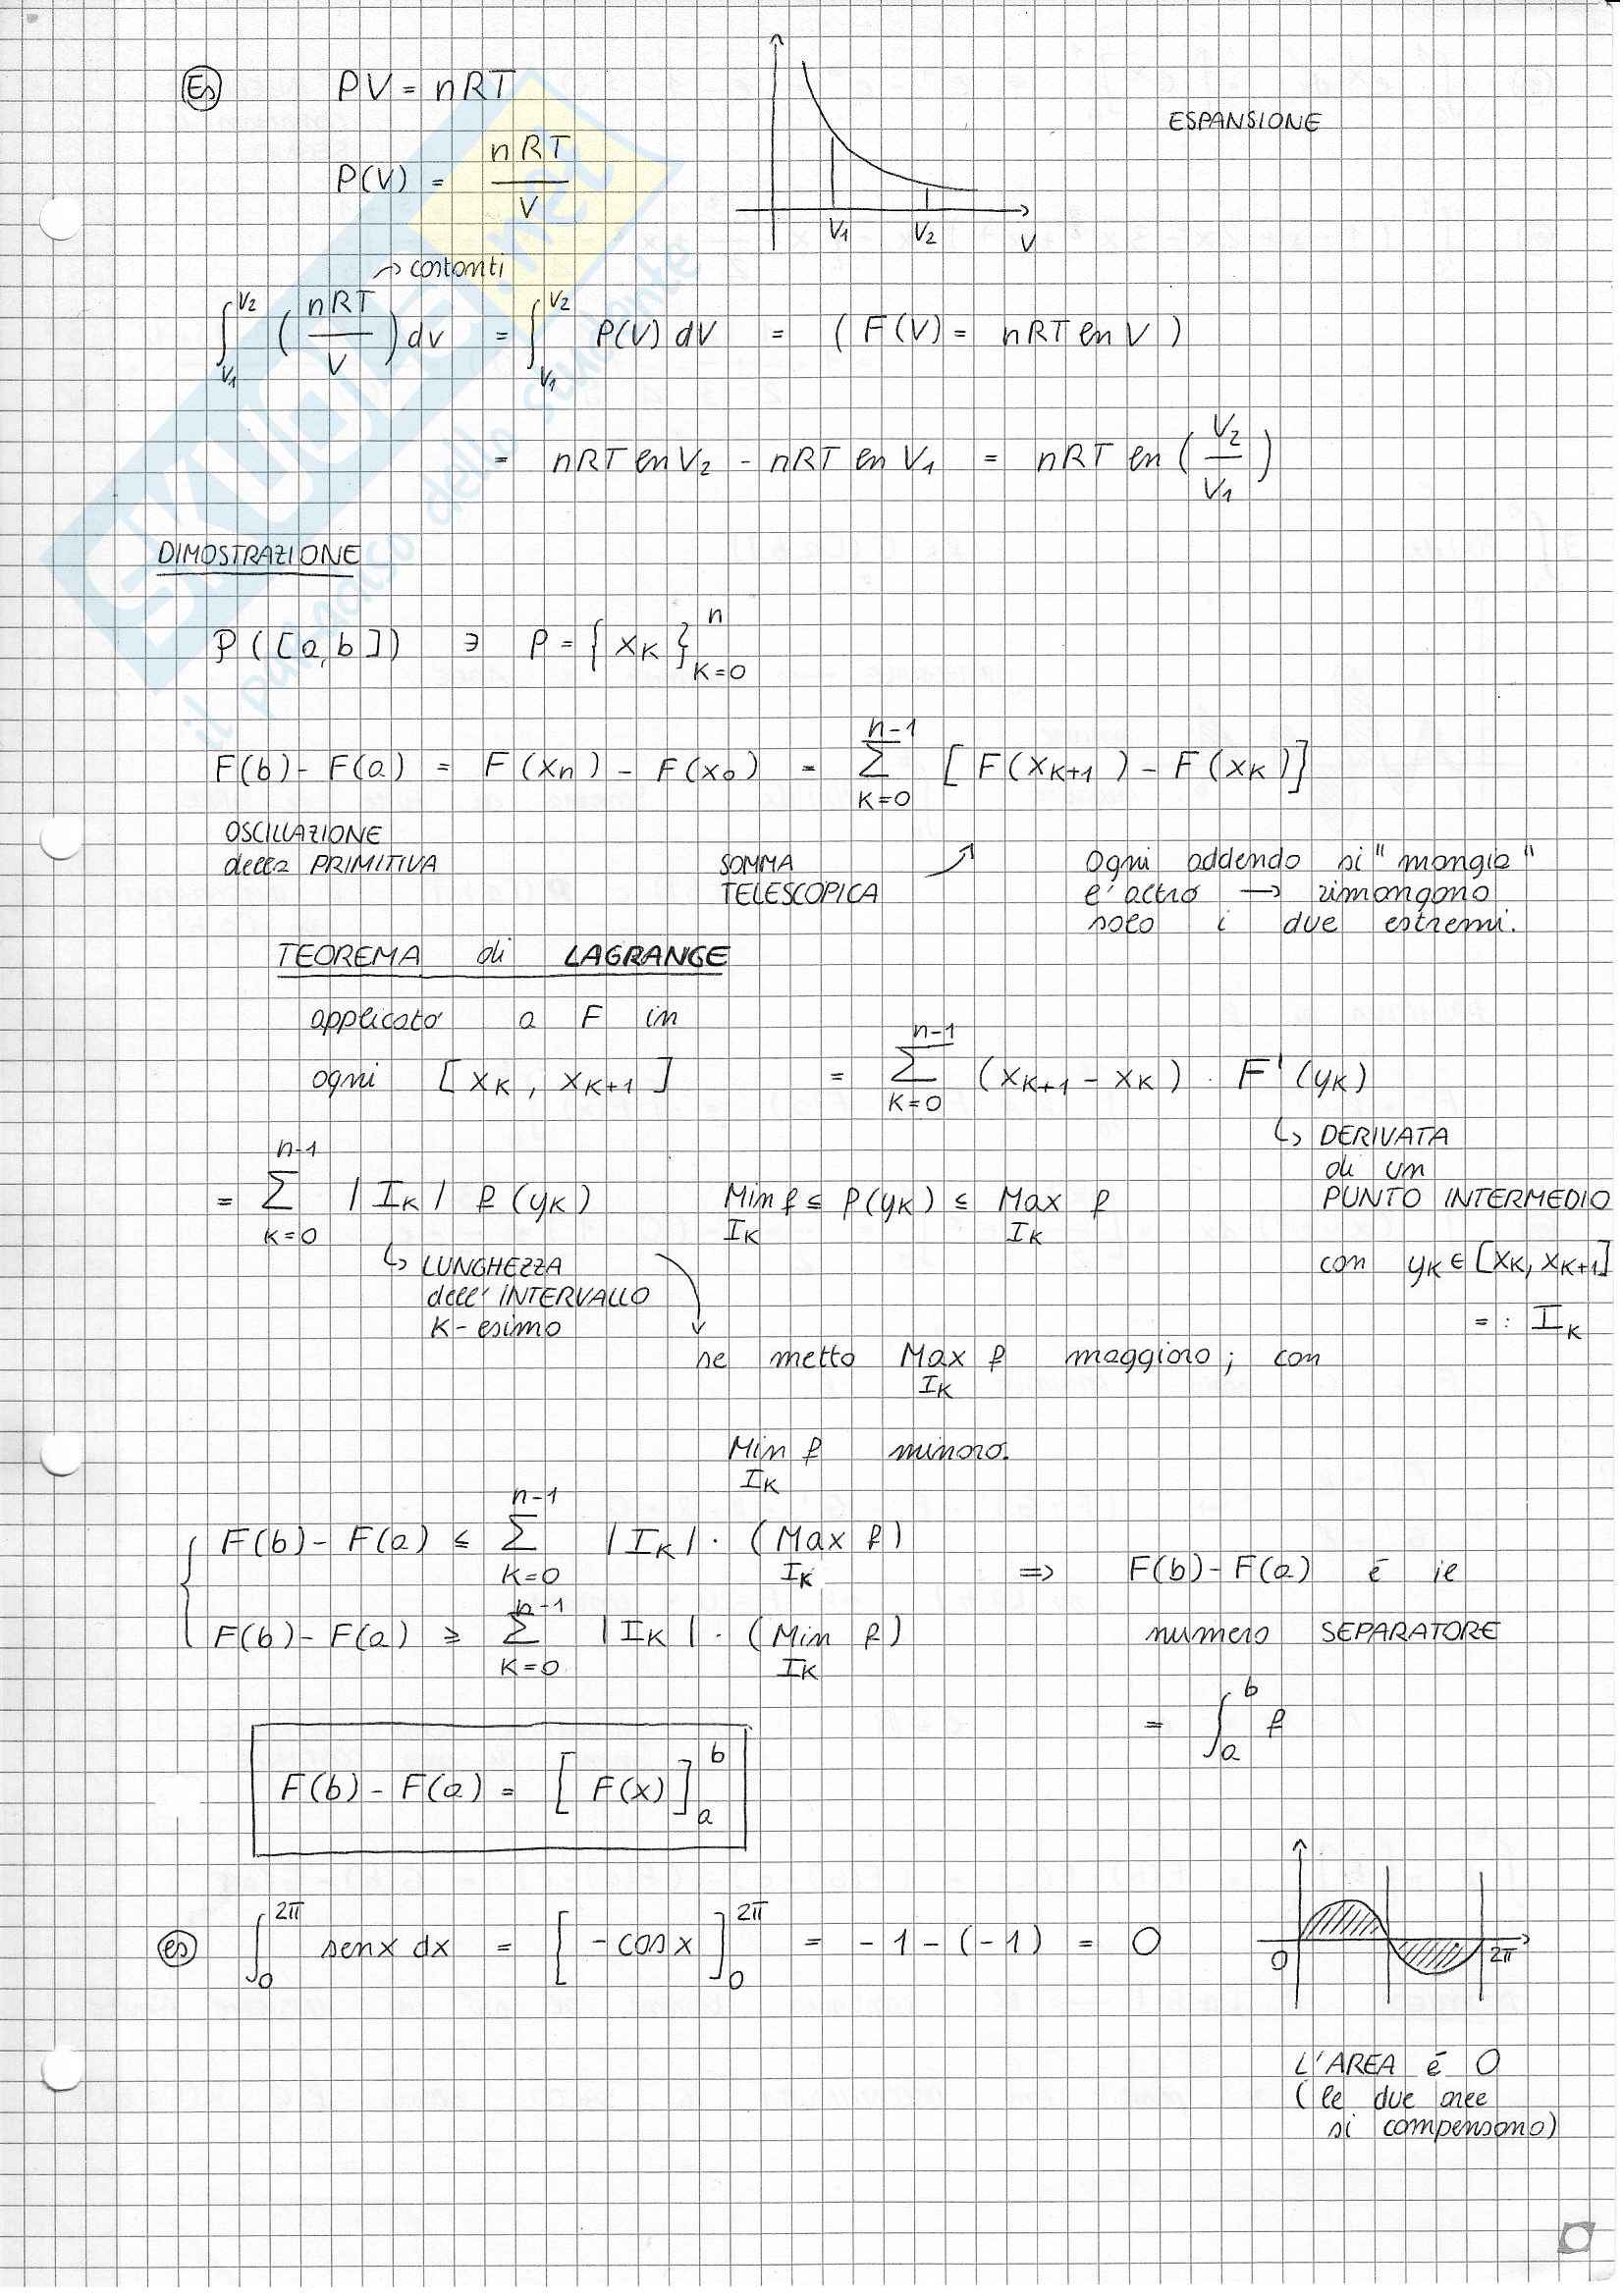 Es PV = nRT
ESPANSIONE
P(V) = nRT / V
V1 V2 V
→ costanti
∫_{V1}^{V2} (nRT / V) dV = ∫_{V1}^{V2} P(V) dV = ( F(V) = nRT ln V )
= nRT ln V2 - nRT ln V1 = nRT ln (V2 / V1)
DIMOSTRAZIONE
P([a,b]) ∋ P = { xK }_{K=0}^{n}
F(b) - F(a) = F(xn) - F(x0) = Σ_{K=0}^{n-1} [ F(xK+1) - F(xK) ]
OSCILLAZIONE
della PRIMITIVA
SOMMA
TELESCOPICA
Ogni addendo si "mangia"
l'altro → rimangono
solo i due estremi.
TEOREMA di LAGRANGE
applicato a F in
ogni [ xK , xK+1 ] = Σ_{K=0}^{n-1} (xK+1 - xK) · F'(yK)
↳ DERIVATA
di un
PUNTO INTERMEDIO
con yK ∈ [xK, xK+1]
=: IK
= Σ_{K=0}^{n-1} |IK| f(yK) Min_{IK} f ≤ f(yK) ≤ Max_{IK} f
↳ LUNGHEZZA
dell'INTERVALLO
K-esimo
se metto Max_{IK} f maggioro; con
Min_{IK} f minoro.
F(b) - F(a) ≤ Σ_{K=0}^{n-1} |IK| · (Max_{IK} f)
F(b) - F(a) ≥ Σ_{K=0}^{n-1} |IK| · (Min_{IK} f)
=> F(b) - F(a) é il
numero SEPARATORE
= ∫_{a}^{b} f
F(b) - F(a) = [ F(x) ]_{a}^{b}
es ∫_{0}^{2π} senx dx = [ -cosx ]_{0}^{2π} = -1 - (-1) = 0
0 2π
L'AREA é 0
(le due aree
si compensano)
SKUOLA.net
il paradiso dello studente